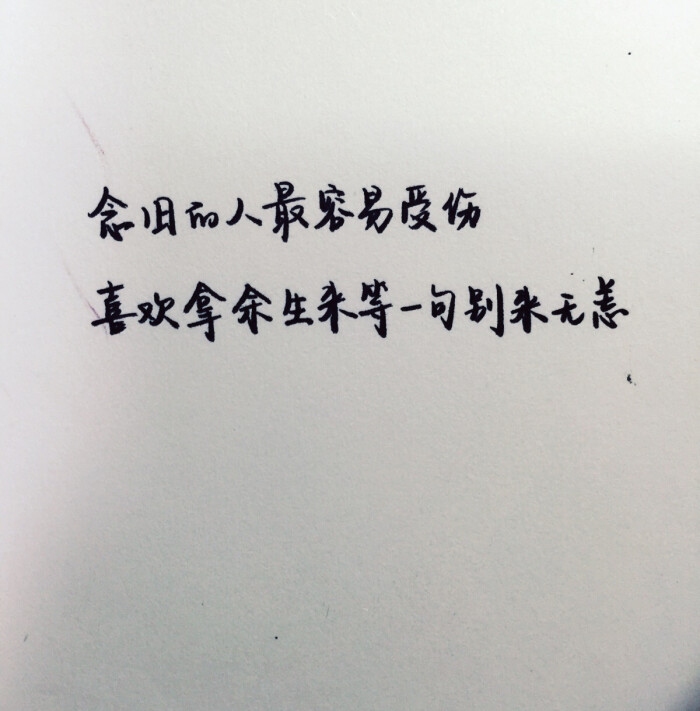 念旧的人最容易受伤
喜欢拿余生来等一句别来无恙